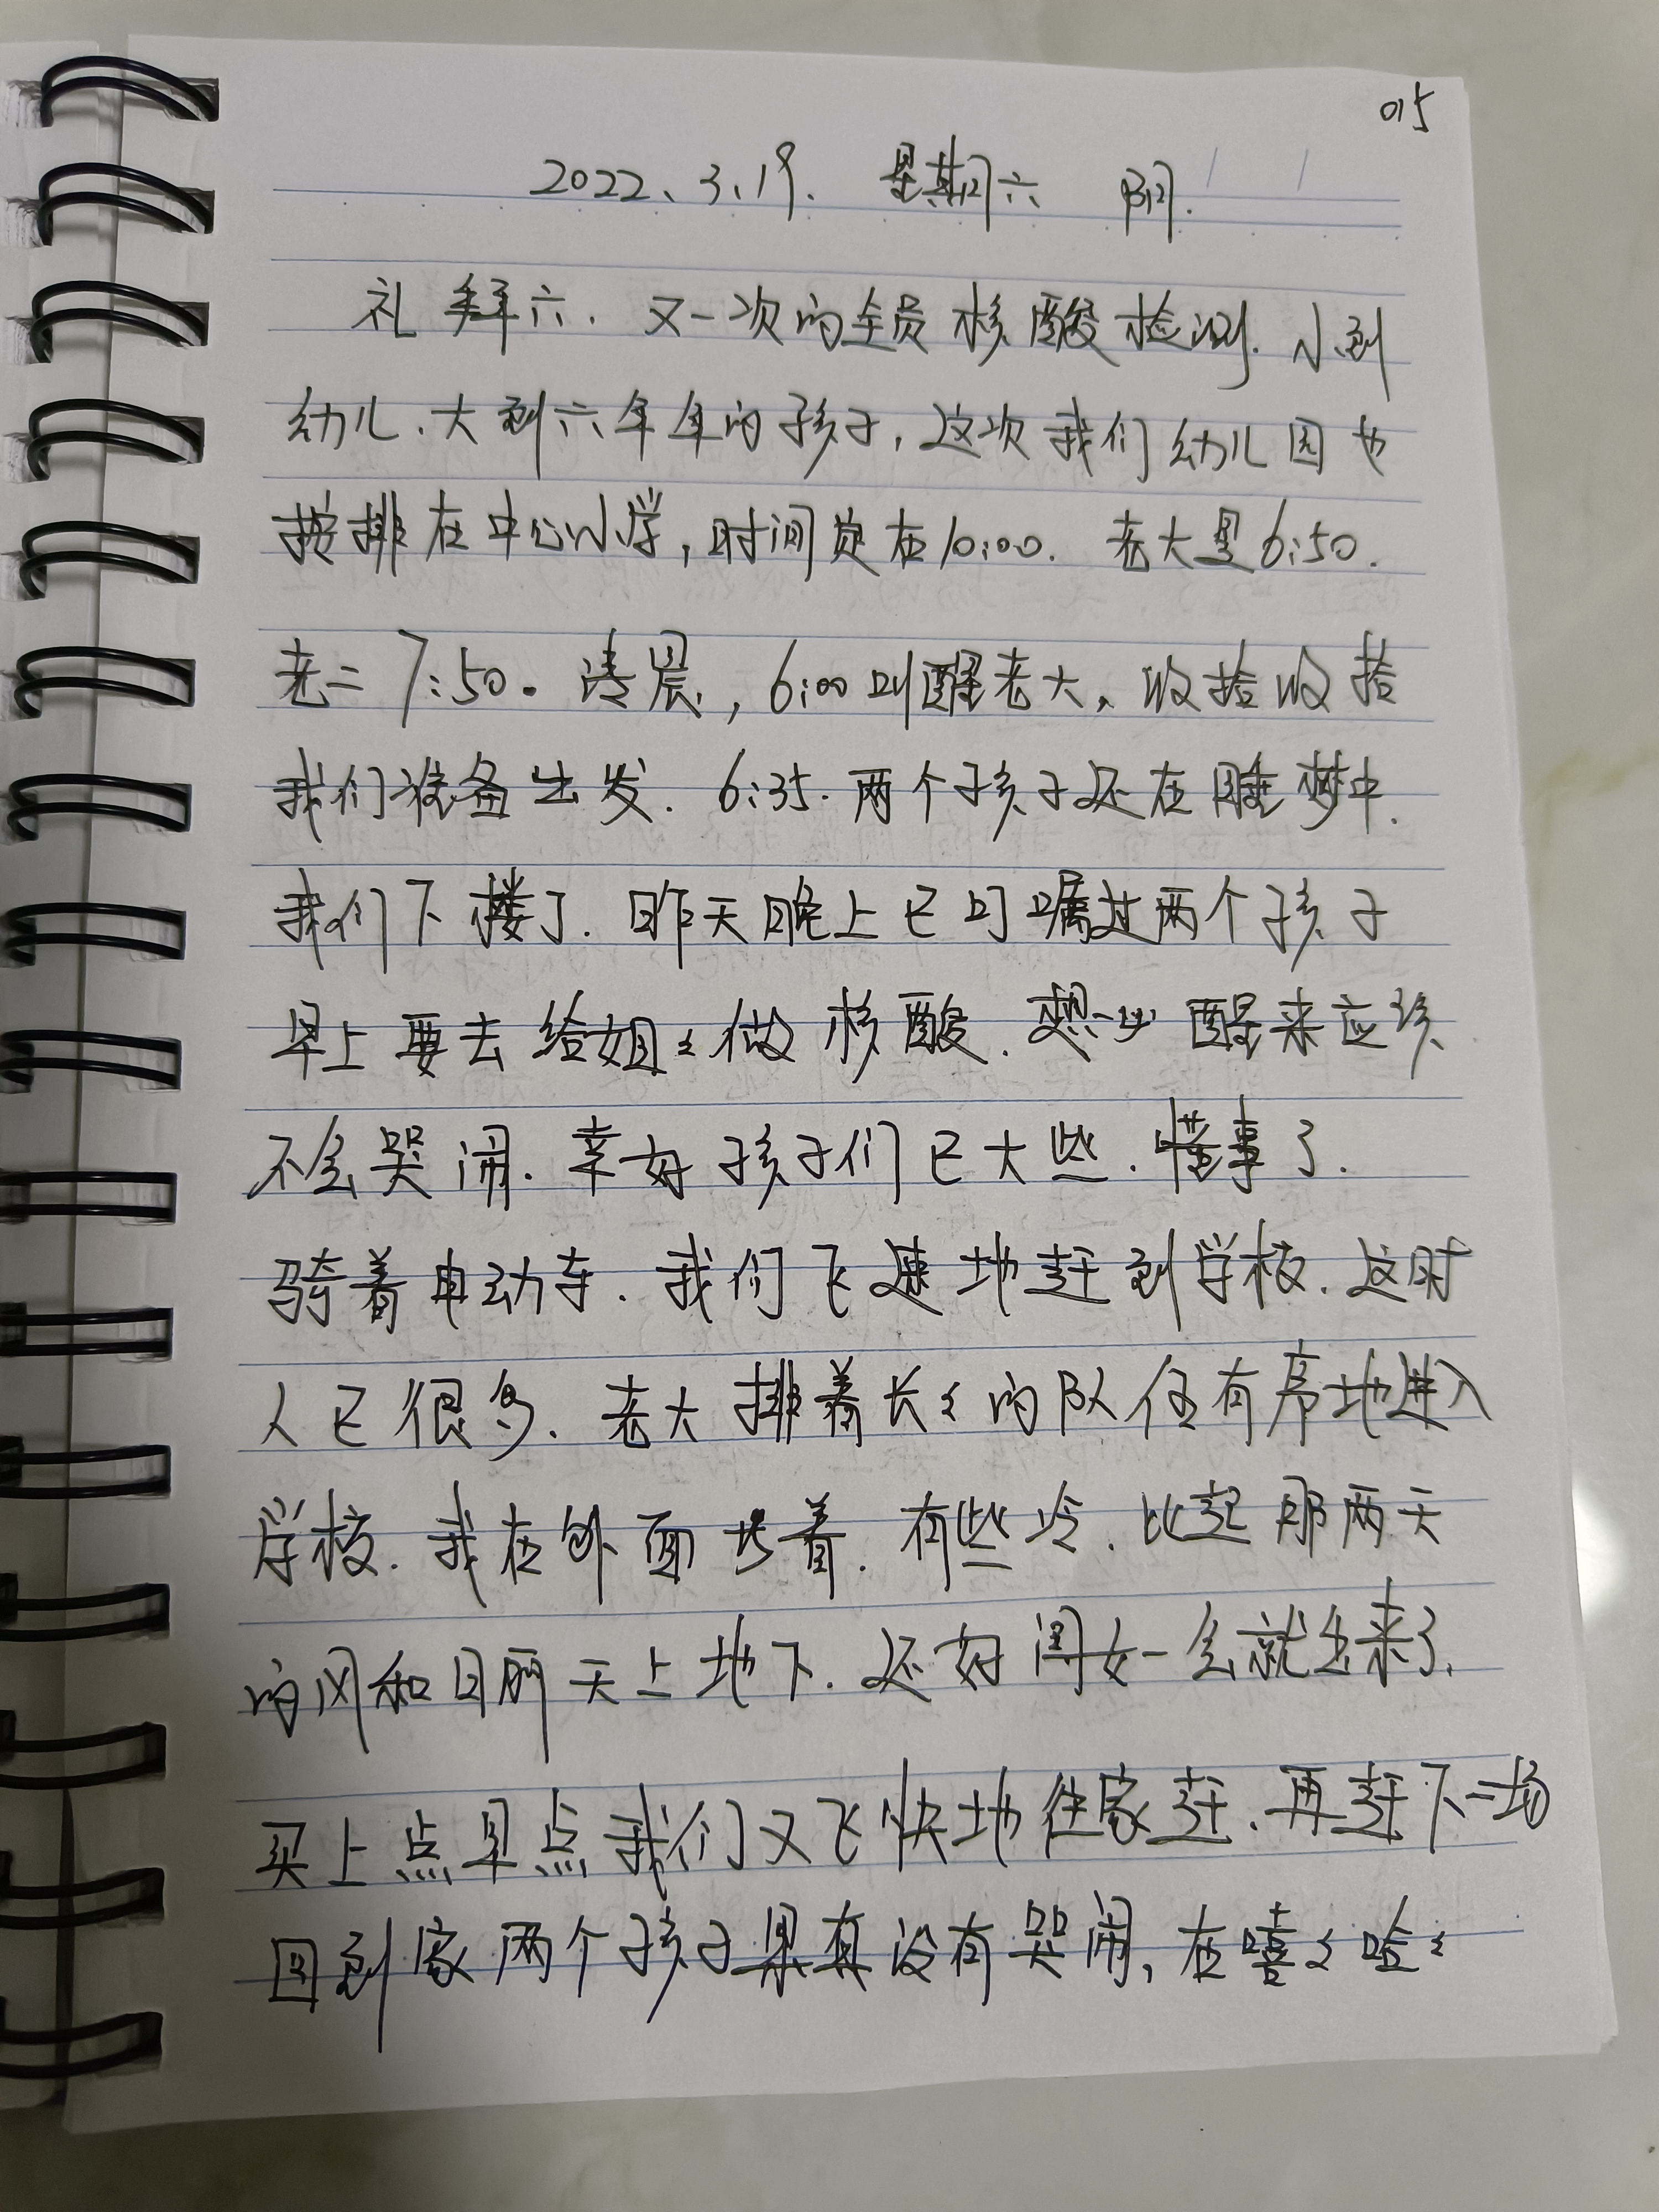 015
2022、3、19. 星期六 阴.
礼拜六. 又一次的全员核酸检测. 小到
幼儿、大到六年年的孩子, 这次我们幼儿园也
按排在中心小学, 时间定在10:00. 老大是6:50.
老二7:50。清晨, 6:00叫醒老大、收拾收拾
我们准备出发. 6:35. 两个孩子还在睡梦中.
我们下楼了. 昨天晚上已叮嘱过两个孩子
早上要去给姐々做核酸. 想必醒来应该
不会哭闹. 幸好孩子们已大些. 懂事了.
骑着电动车. 我们飞速地赶到学校. 这时
人已很多. 老大排着长々的队伍有序地进入
学校. 我在外面 着. 有些冷. 比起那两天
的风和日丽天上地下. 还好闺女一会就出来了.
买上点早点我们又飞快地往家赶. 再赶下一场
回到家两个孩子果真没有哭闹, 在嘻々哈々